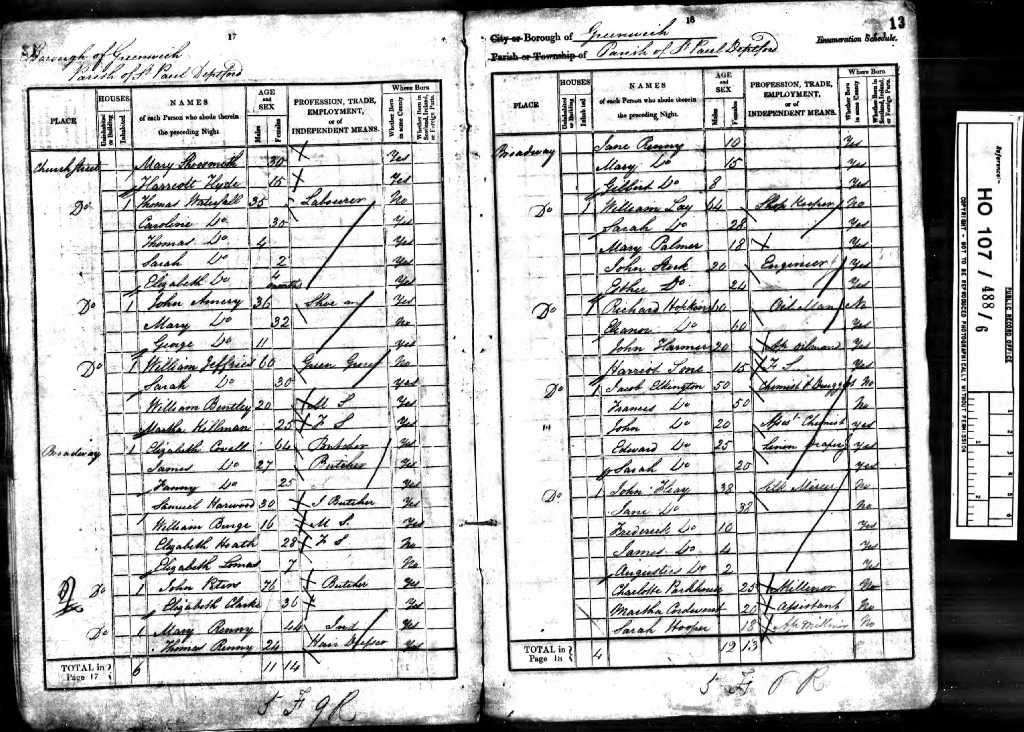 17
Borough of Greenwich
Parish of St Paul Deptford
PLACE
HOUSES
Uninhabited or Building
Inhabited
NAMES
of each Person who abode therein
the preceding Night.
AGE and SEX
Males
Females
PROFESSION, TRADE,
EMPLOYMENT,
or of
INDEPENDENT MEANS.
Where Born
Whether Born in same County
Whether Born in Scotland, Ireland, or Foreign Parts.
Church Street Mary 30 Yes
Harriott Hyde 15 Yes
Do 1 Thomas Waterfall 35 Labourer No
Caroline Do 30 Yes
Thomas Do 4 Yes
Sarah Do 2 Yes
Elizabeth Do 4 months Yes
Do 1 John Amery 36 Shoe Yes
Mary Do 32 No
George Do 11 Yes
Do 1 William Jeffries 60 Green Grocer No
Sarah Do 30 Yes
William Bentley 20 M S Yes
Martha Hillman 25 F S Yes
Broadway 1 Elizabeth Covell 64 Butcher Yes
James Do 27 Butcher Yes
Fanny Do 25 Yes
Samuel Harwood 30 J Butcher Yes
William Burge 16 M S. Yes
Elizabeth Heath 28 F S No
Elizabeth Lomas 7 No
Do 1 John 76 Butcher Yes
Elizabeth Clarke 36 Yes
Do 1 Mary Penny 44 Ind Yes
Thomas Penny 24 Hair Dresser Yes
TOTAL in Page 17 6 11 14
5 F 9 R
18
13
City or Borough of Greenwich
Parish or Township of Parish of St Paul Deptford
Enumeration Schedule.
PLACE
HOUSES
Uninhabited or Building
Inhabited
NAMES
of each Person who abode therein
the preceding Night.
AGE and SEX
Males
Females
PROFESSION, TRADE,
EMPLOYMENT,
or of
INDEPENDENT MEANS.
Where Born
Whether Born in same County
Whether Born in Scotland, Ireland, or Foreign Parts.
Broadway Jane Penny 10 Yes
Mary Do 15 Yes
Gilbert Do 8 Yes
Do 1 William Lay 64 Shop Keeper No
Sarah Do 28 Yes
Mary Palmer 18 Yes
John 20 Engineer Yes
Esther Do 24 Yes
Do 1 Richard Hopkins 60 Oil Man No
Eleanor Do 60 Yes
John Harmer 20 Yes
Harriot 15 F S Yes
Do 1 Jacob Elkington 50 Chemist & Druggist No
Frances Do 50 No
John Do 20 Chemist Yes
Edward Do 25 Linen Draper Yes
Sarah Do 20 Yes
Do 1 John 38 Silk Mercer No
Jane Do 32 No
Frederick Do 10 Yes
James Do 4 Yes
Augustus Do 2 Yes
Charlotte Parkhouse 25 Milliner No
Martha 20 Assistant No
Sarah Hooper 18 Ap Milliner No
TOTAL in Page 18 4 12 13
5 F 6 R
Reference:-
HO 107 / 488 / 6
PUBLIC RECORD OFFICE
COPYRIGHT - NOT TO BE REPRODUCED PHOTOGRAPHICALLY WITHOUT PERMISSION
1
2
3
4
5
6